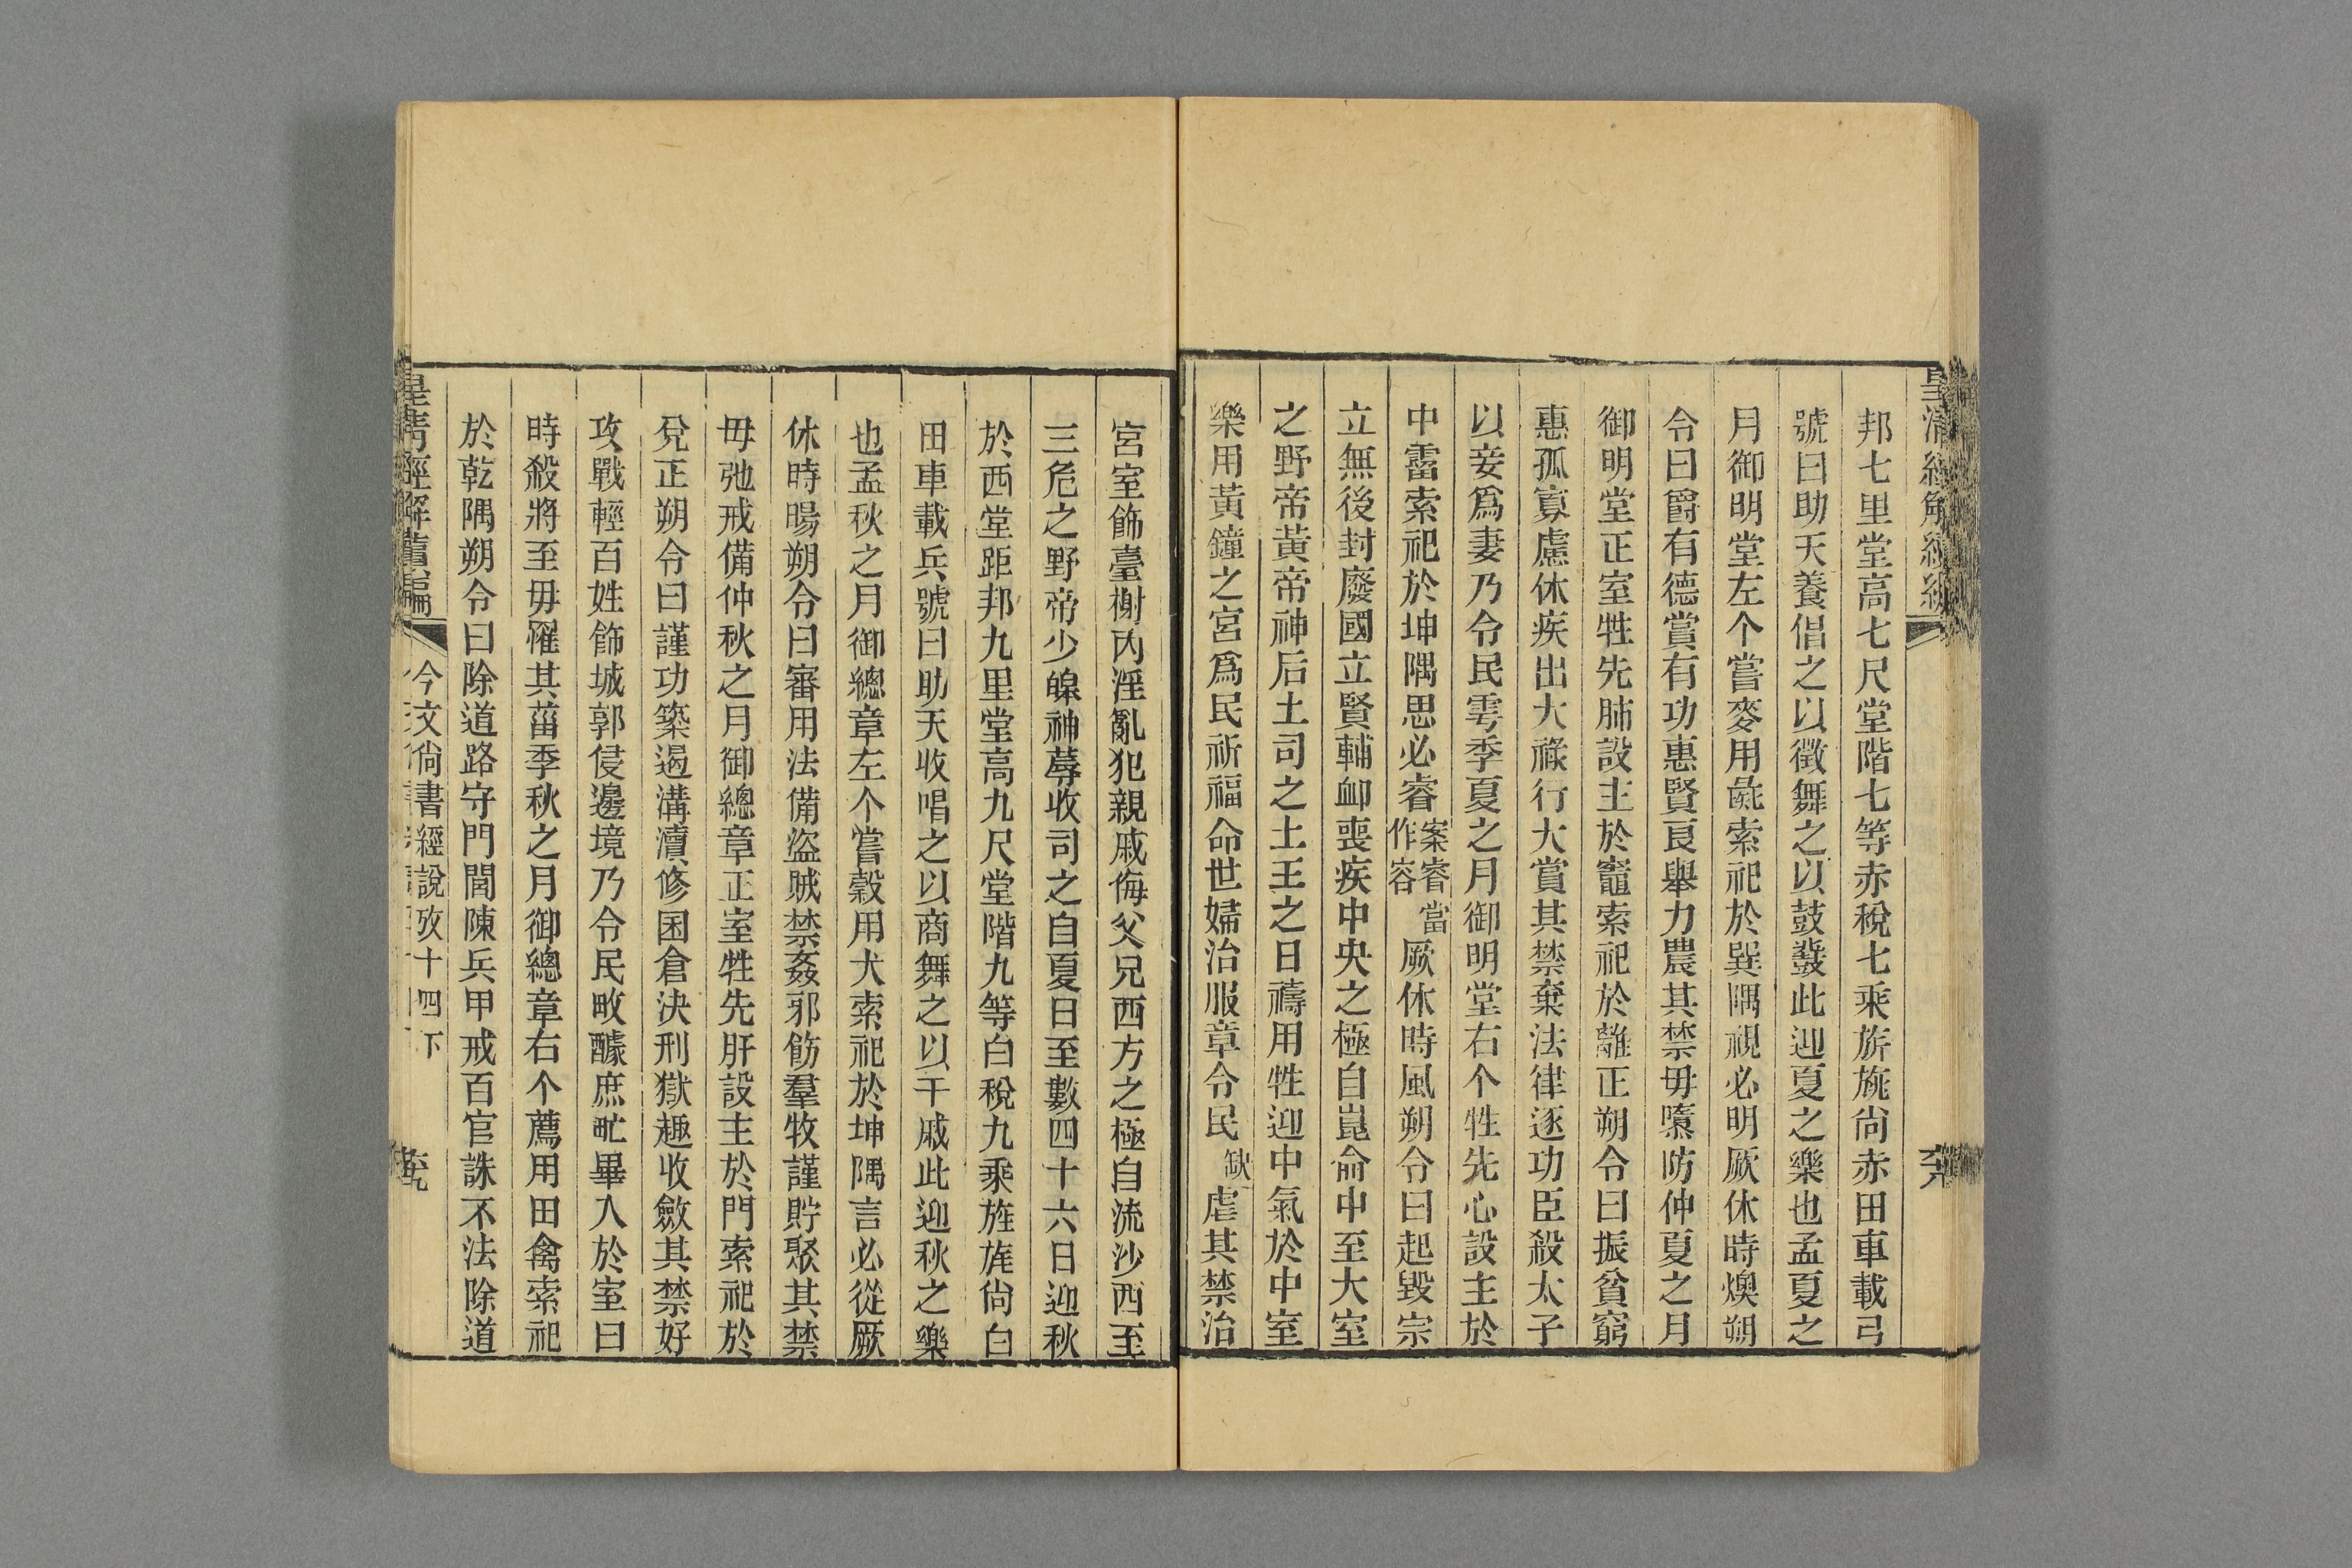 皇清經解續編
邦七里堂高七尺堂階七等赤稅七乘旂旐尙赤田車載弓
號曰助天養倡之以徵舞之以鼓鼗此迎夏之樂也孟夏之
月御明堂左个嘗麥用彘索祀於巽隅視必明厥休時燠朔
令曰爵有德賞有功惠賢良舉力農其禁毋隳防仲夏之月
御明堂正室牲先肺設主於竈索祀於離正朔令曰振貧窮
惠孤寡慮休疾出大祿行大賞其禁棄法律逐功臣殺太子
以妾爲妻乃令民雩季夏之月御明堂右个牲先心設主於
中霤索祀於坤隅思必睿案睿當作容厥休時風朔令曰起毀宗
立無後封廢國立賢輔卹喪疾中央之極自崑侖中至大室
之野帝黃帝神后土司之土王之日禱用牲迎中氣於中室
樂用黃鐘之宮爲民祈福命世婦治服章令民缺虐其禁治
宮室飾臺榭內淫亂犯親戚侮父兄西方之極自流沙西至
三危之野帝少皞神蓐收司之自夏日至數四十六日迎秋
於西堂距邦九里堂高九尺堂階九等白稅九乘旌旄尙白
田車載兵號曰助天收唱之以商舞之以干戚此迎秋之樂
也孟秋之月御總章左个嘗穀用犬索祀於坤隅言必從厥
休時暘朔令曰審用法備盜賊禁姦邪飭羣牧謹貯聚其禁
毋弛戒備仲秋之月御總章正室牲先肝設主於門索祀於
兌正朔令曰謹功築遏溝瀆修囷倉決刑獄趣收斂其禁好
攻戰輕百姓飾城郭侵邊境乃令民畋醵庶甿畢入於室曰
時殺將至毋罹其菑季秋之月御總章右个薦用田禽索祀
於乾隅朔令曰除道路守門閭陳兵甲戒百官誅不法除道
皇清經解續編 今文尙書經說攷十四下